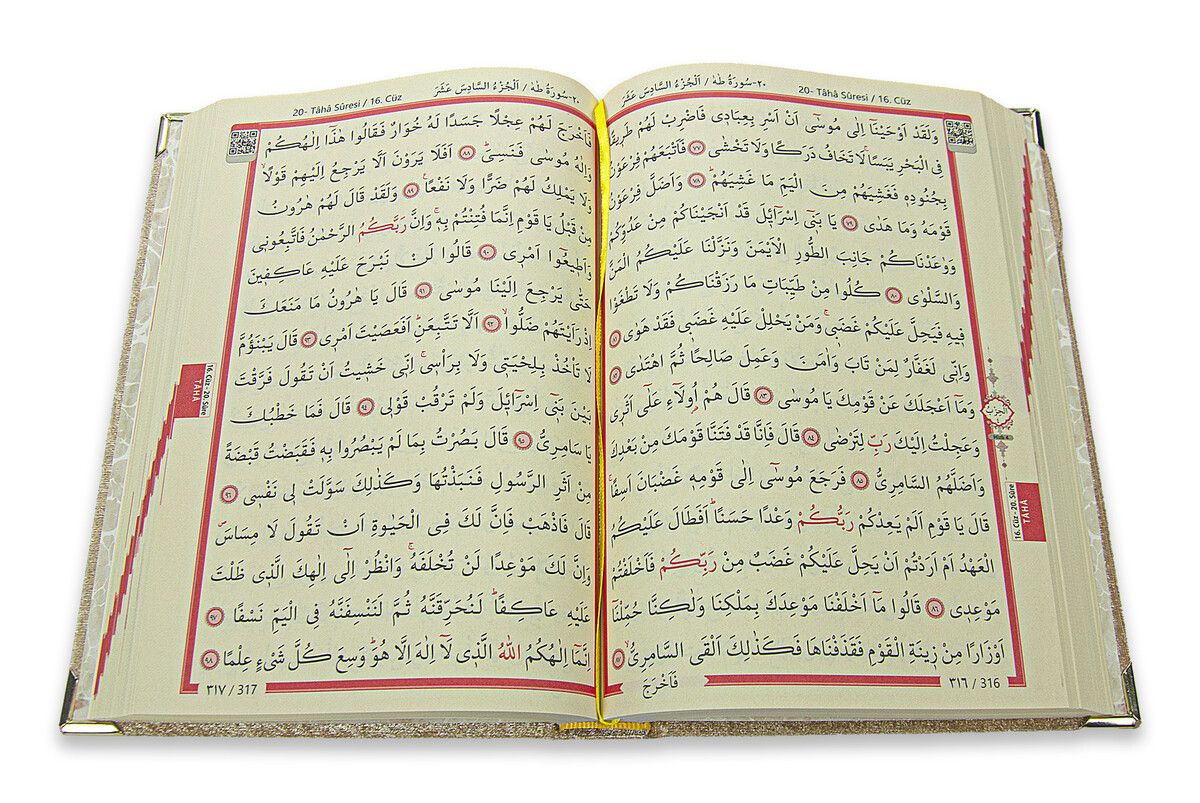 ٢٠-سُورَةُ طٰهٰ / اَلْجُزْءُ السَّادِسَ عَشَرَ
20- Tâhâ Sûresi / 16. Cüz
وَلَقَدْ اَوْحَيْنَٓا اِلٰى مُوسٰٓى اَنْ اَسْرِ بِعِبَادٖى فَاضْرِبْ لَهُمْ طَرٖيقًا
فِى الْبَحْرِ يَبَسًاۙ لَا تَخَافُ دَرَكًا وَلَا تَخْشٰى ﴿٧٧﴾ فَاَتْبَعَهُمْ فِرْعَوْنُ
بِجُنُودِهٖ فَغَشِيَهُمْ مِنَ الْيَمِّ مَا غَشِيَهُمْ ﴿٧٨﴾ وَاَضَلَّ فِرْعَوْنُ
قَوْمَهُ وَمَا هَدٰى ﴿٧٩﴾ يَا بَنٖٓى اِسْرَٓائٖلَ قَدْ اَنْجَيْنَاكُمْ مِنْ عَدُوِّكُمْ
وَوٰعَدْنَاكُمْ جَانِبَ الطُّورِ الْاَيْمَنَ وَنَزَّلْنَا عَلَيْكُمُ الْمَنَّ
وَالسَّلْوٰى ﴿٨٠﴾ كُلُوا مِنْ طَيِّبَاتِ مَا رَزَقْنَاكُمْ وَلَا تَطْغَوْا
فٖيهِ فَيَحِلَّ عَلَيْكُمْ غَضَبٖىۚ وَمَنْ يَحْلِلْ عَلَيْهِ غَضَبٖى فَقَدْ هَوٰى ﴿٨١﴾
وَاِنّٖى لَغَفَّارٌ لِمَنْ تَابَ وَاٰمَنَ وَعَمِلَ صَالِحًا ثُمَّ اهْتَدٰى ﴿٨٢﴾
وَمَٓا اَعْجَلَكَ عَنْ قَوْمِكَ يَا مُوسٰى ﴿٨٣﴾ قَالَ هُمْ اُو۬لَٓاءِ عَلٰٓى اَثَرٖى
وَعَجِلْتُ اِلَيْكَ رَبِّ لِتَرْضٰى ﴿٨٤﴾ قَالَ فَاِنَّا قَدْ فَتَنَّا قَوْمَكَ مِنْ بَعْدِكَ
وَاَضَلَّهُمُ السَّامِرِىُّ ﴿٨٥﴾ فَرَجَعَ مُوسٰٓى اِلٰى قَوْمِهٖ غَضْبَانَ اَسِفًاۚ
قَالَ يَا قَوْمِ اَلَمْ يَعِدْكُمْ رَبُّكُمْ وَعْدًا حَسَنًاؕ اَفَطَالَ عَلَيْكُمُ
الْعَهْدُ اَمْ اَرَدْتُمْ اَنْ يَحِلَّ عَلَيْكُمْ غَضَبٌ مِنْ رَبِّكُمْ فَاَخْلَفْتُمْ
مَوْعِدٖى ﴿٨٦﴾ قَالُوا مَٓا اَخْلَفْنَا مَوْعِدَكَ بِمَلْكِنَا وَلٰكِنَّا حُمِّلْنَٓا
اَوْزَارًا مِنْ زٖينَةِ الْقَوْمِ فَقَذَفْنَاهَا فَكَذٰلِكَ اَلْقَى السَّامِرِىُّۙ ﴿٨٧﴾
فَاَخْرَجَ
٣١٦ / 316
اَلْحِزْبُ
16. Cüz - 20. Sûre
TÂHÂ
20- Tâhâ Sûresi / 16. Cüz
٢٠-سُورَةُ طٰهٰ / اَلْجُزْءُ السَّادِسَ عَشَرَ
فَاَخْرَجَ لَهُمْ عِجْلًا جَسَدًا لَهُ خُوَارٌ فَقَالُوا هٰذَٓا اِلٰهُكُمْ
وَاِلٰهُ مُوسٰى فَنَسِىَؕ ﴿٨٨﴾ اَفَلَا يَرَوْنَ اَلَّا يَرْجِعُ اِلَيْهِمْ قَوْلًاۙ
وَلَا يَمْلِكُ لَهُمْ ضَرًّا وَلَا نَفْعًا۟ ﴿٨٩﴾ وَلَقَدْ قَالَ لَهُمْ هٰرُونُ
مِنْ قَبْلُ يَا قَوْمِ اِنَّمَا فُتِنْتُمْ بِهٖۚ وَاِنَّ رَبَّكُمُ الرَّحْمٰنُ فَاتَّبِعُونٖى
وَاَطٖيعُٓوا اَمْرٖى ﴿٩٠﴾ قَالُوا لَنْ نَبْرَحَ عَلَيْهِ عَاكِفٖينَ
حَتّٰى يَرْجِعَ اِلَيْنَا مُوسٰى ﴿٩١﴾ قَالَ يَا هٰرُونُ مَا مَنَعَكَ
اِذْ رَاَيْتَهُمْ ضَلُّواۙ ﴿٩٢﴾ اَلَّا تَتَّبِعَنِؕ اَفَعَصَيْتَ اَمْرٖى ﴿٩٣﴾ قَالَ يَبْنَؤُمَّ
لَا تَاْخُذْ بِلِحْيَتٖى وَلَا بِرَاْسٖىۚ اِنّٖى خَشٖيتُ اَنْ تَقُولَ فَرَّقْتَ
بَيْنَ بَنٖٓى اِسْرَٓائٖلَ وَلَمْ تَرْقُبْ قَوْلٖى ﴿٩٤﴾ قَالَ فَمَا خَطْبُكَ
يَا سَامِرِىُّ ﴿٩٥﴾ قَالَ بَصُرْتُ بِمَا لَمْ يَبْصُرُوا بِهٖ فَقَبَضْتُ قَبْضَةً
مِنْ اَثَرِ الرَّسُولِ فَنَبَذْتُهَا وَكَذٰلِكَ سَوَّلَتْ لٖى نَفْسٖى ﴿٩٦﴾
قَالَ فَاذْهَبْ فَاِنَّ لَكَ فِى الْحَيٰوةِ اَنْ تَقُولَ لَا مِسَاسَۖ
وَاِنَّ لَكَ مَوْعِدًا لَنْ تُخْلَفَهُۚ وَانْظُرْ اِلٰٓى اِلٰهِكَ الَّذٖى ظَلْتَ
عَلَيْهِ عَاكِفًاؕ لَنُحَرِّقَنَّهُ ثُمَّ لَنَنْسِفَنَّهُ فِى الْيَمِّ نَسْفًا ﴿٩٧﴾
اِنَّمَٓا اِلٰهُكُمُ اللّٰهُ الَّذٖى لَٓا اِلٰهَ اِلَّا هُوَؕ وَسِعَ كُلَّ شَىْءٍ عِلْمًا ﴿٩٨﴾
٣١٧ / 317
16. Cüz - 20. Sûre
TÂHÂ